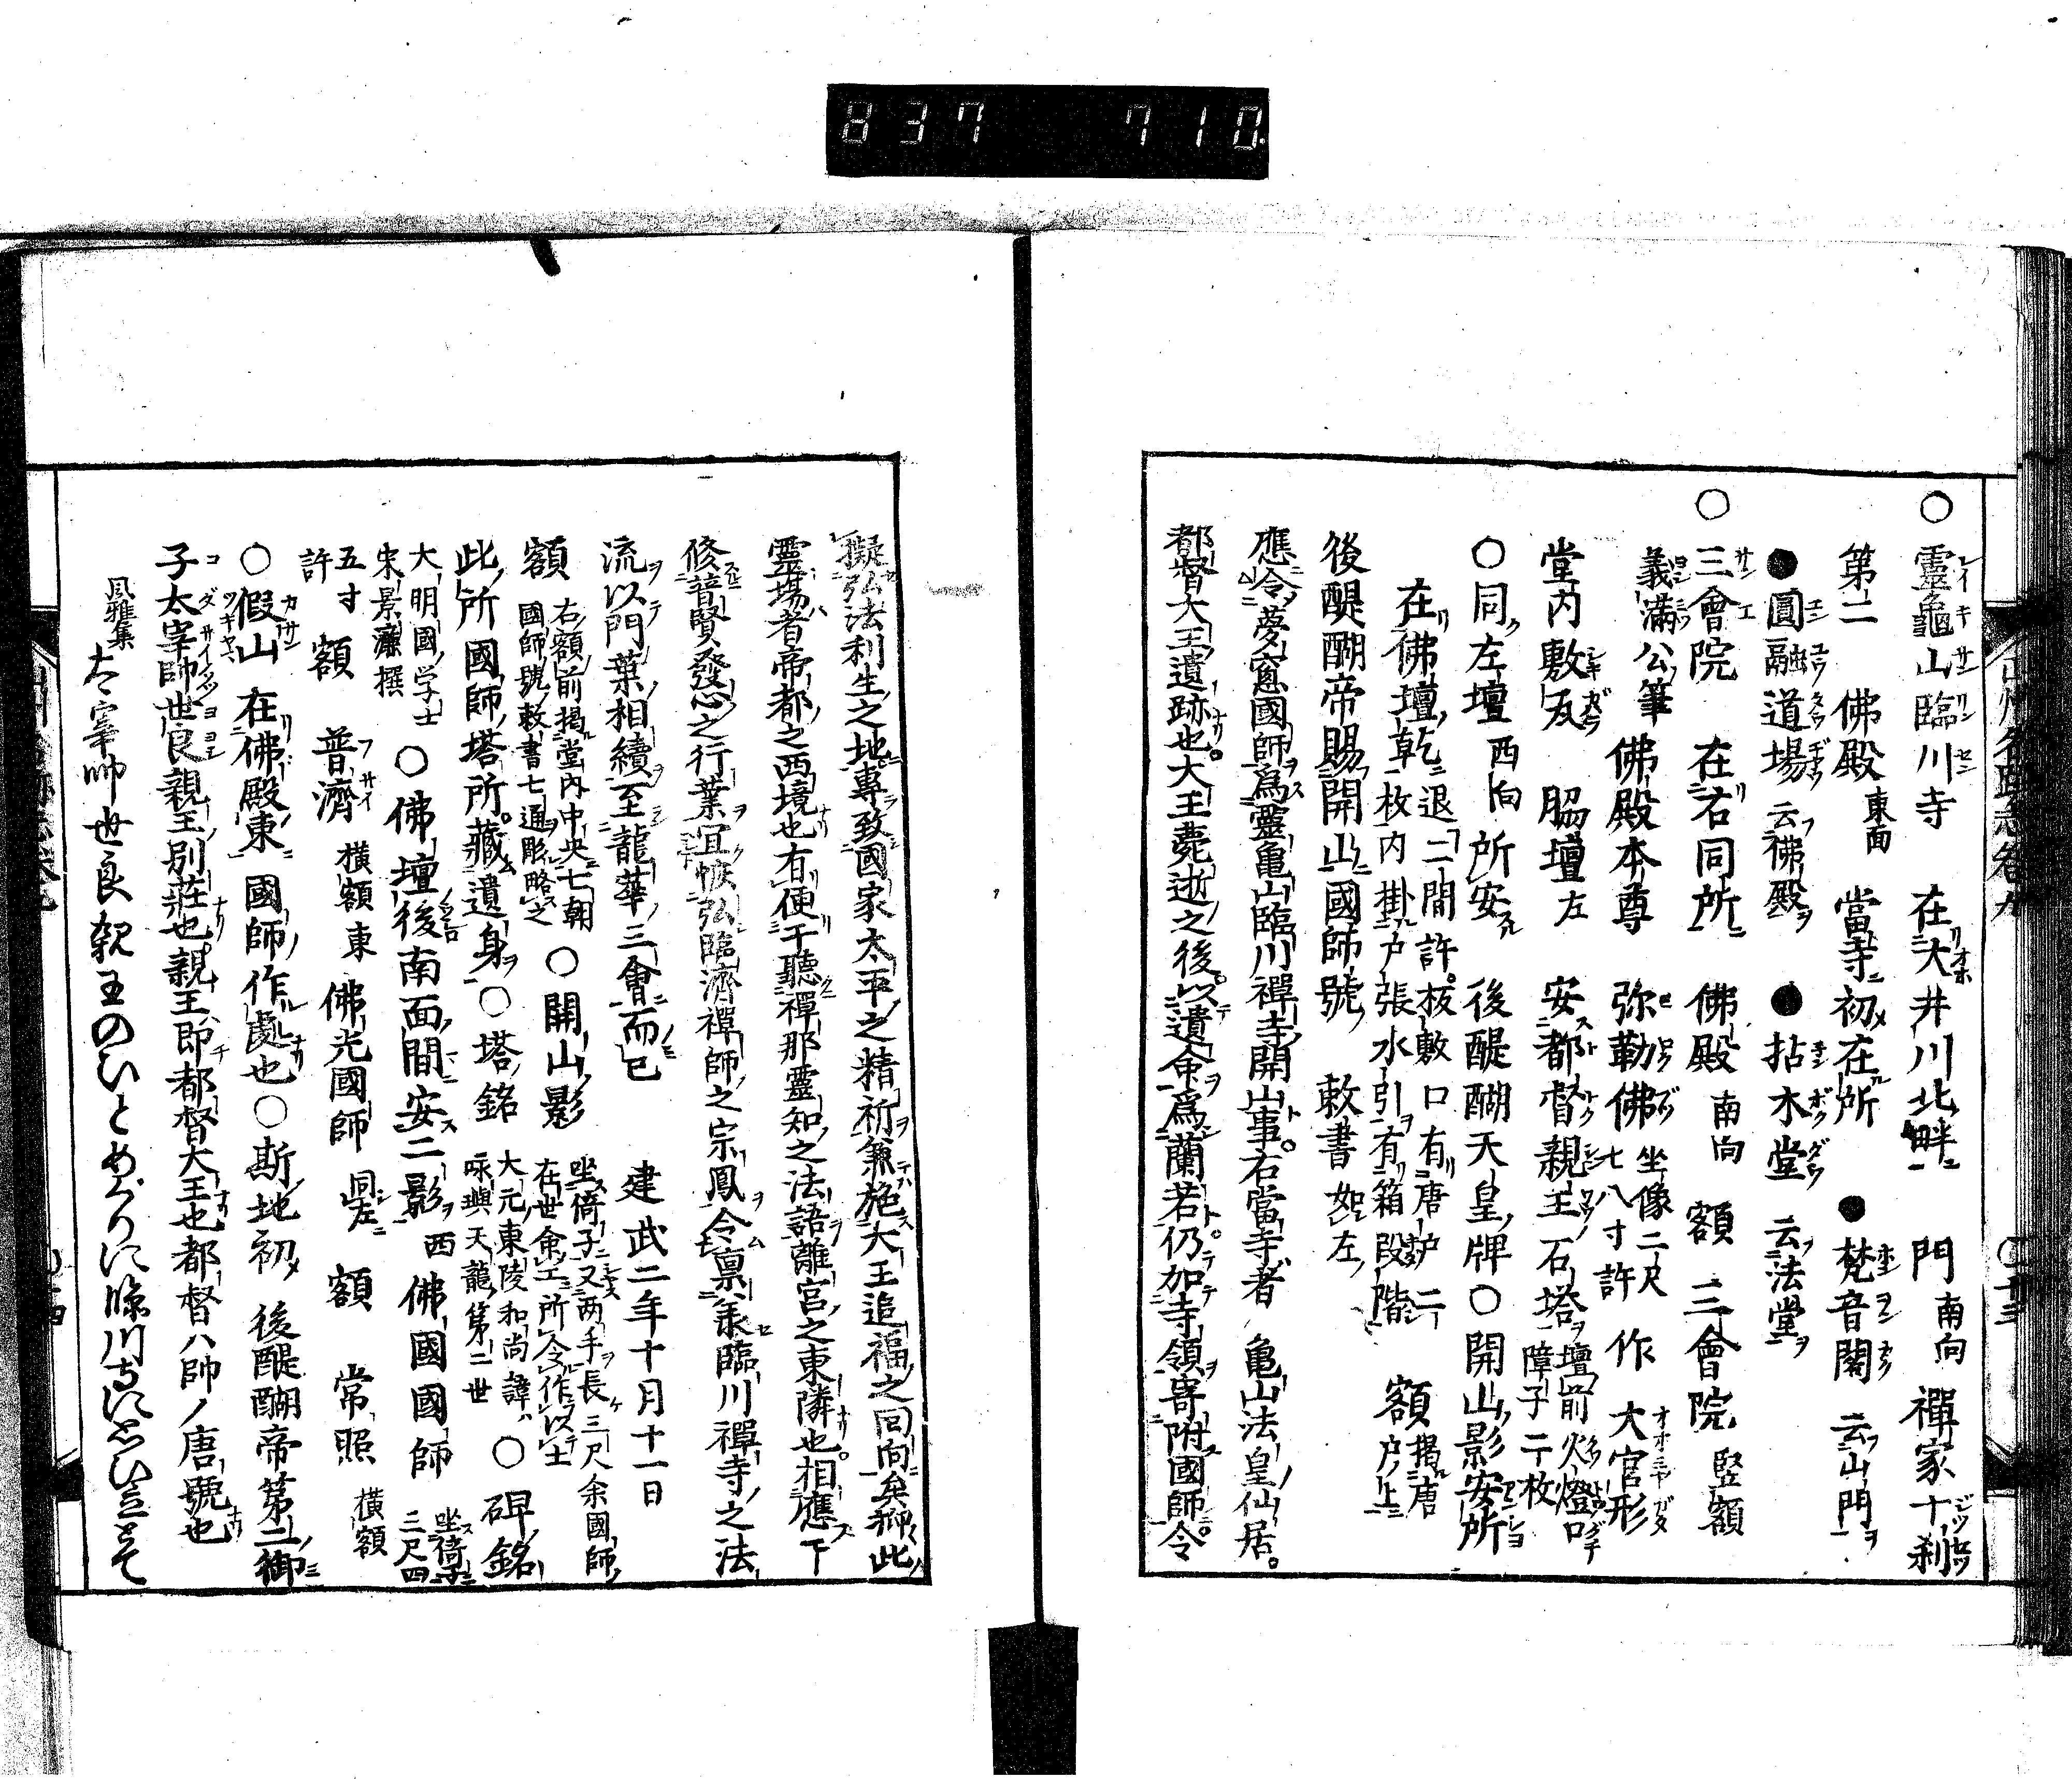 837 710
○靈龜山臨川寺 在大井川北畔 門 南向 禪家十刹
第二 佛殿 東面 當寺初在所 ●梵音閣 云山門
●圓融道場 云佛殿 ●拈木堂 云法堂
○三會院 在右同所 佛殿 南向 額 三會院 竪額
義滿公筆 佛殿本尊 弥勒佛 坐像二尺七八寸許 作 大官形
堂内敷瓦 脇壇左 安都督親王石塔 壇前火燈口障子二枚
○同左壇 西向 所安 後醍醐天皇牌○開山影安所
在佛壇乾 退二間許板敷口有唐戸二枚内掛戸張水引有箱段階 額 掲唐戸上
後醍醐帝賜開山國師號 敕書如左
應令夢窓國師爲靈亀山臨川禪寺開山事。右當寺者 亀山法皇仙居。
都督大王遺跡也。大王薨逝之後。以遺命爲蘭若仍加寺領寄附國師。令
擬弘法利生之地專致國家太平之精祈兼施大王追福之回向矣抑此
靈場者帝都之西境也有便于聽禪那靈知之法語離宮之東隣也。相應下
修普賢發心之行業宜恢弘臨濟禪師之宗風令禀承臨川禪寺之法
流以門葉相續至龍華三會而已 建武二年十月十一日
額 右額前掲堂内中央七朝國師號敕書七通彫略之 ○開山影 坐倚子又両手長三尺余國師在世命工所令作以士
此所國師塔所。藏遺身○塔銘 大元東陵和尚諱永璵天龍第二世 ○碑銘
大明國学士宋景濂撰 ○佛壇後南面間安二影 西 佛國國師 坐倚子三尺四
五寸許 額 普濟 横額 東 佛光國師 同左 額 常照 横額
○假山 在佛殿東 國師作處也○斯地初 後醍醐帝第二御
子太宰帥世良親王別荘也親王即都督大王也都督ハ帥ノ唐號也
風雅集 太宰帥世良親王のひとめぐりに臨川寺に思ひ立とて